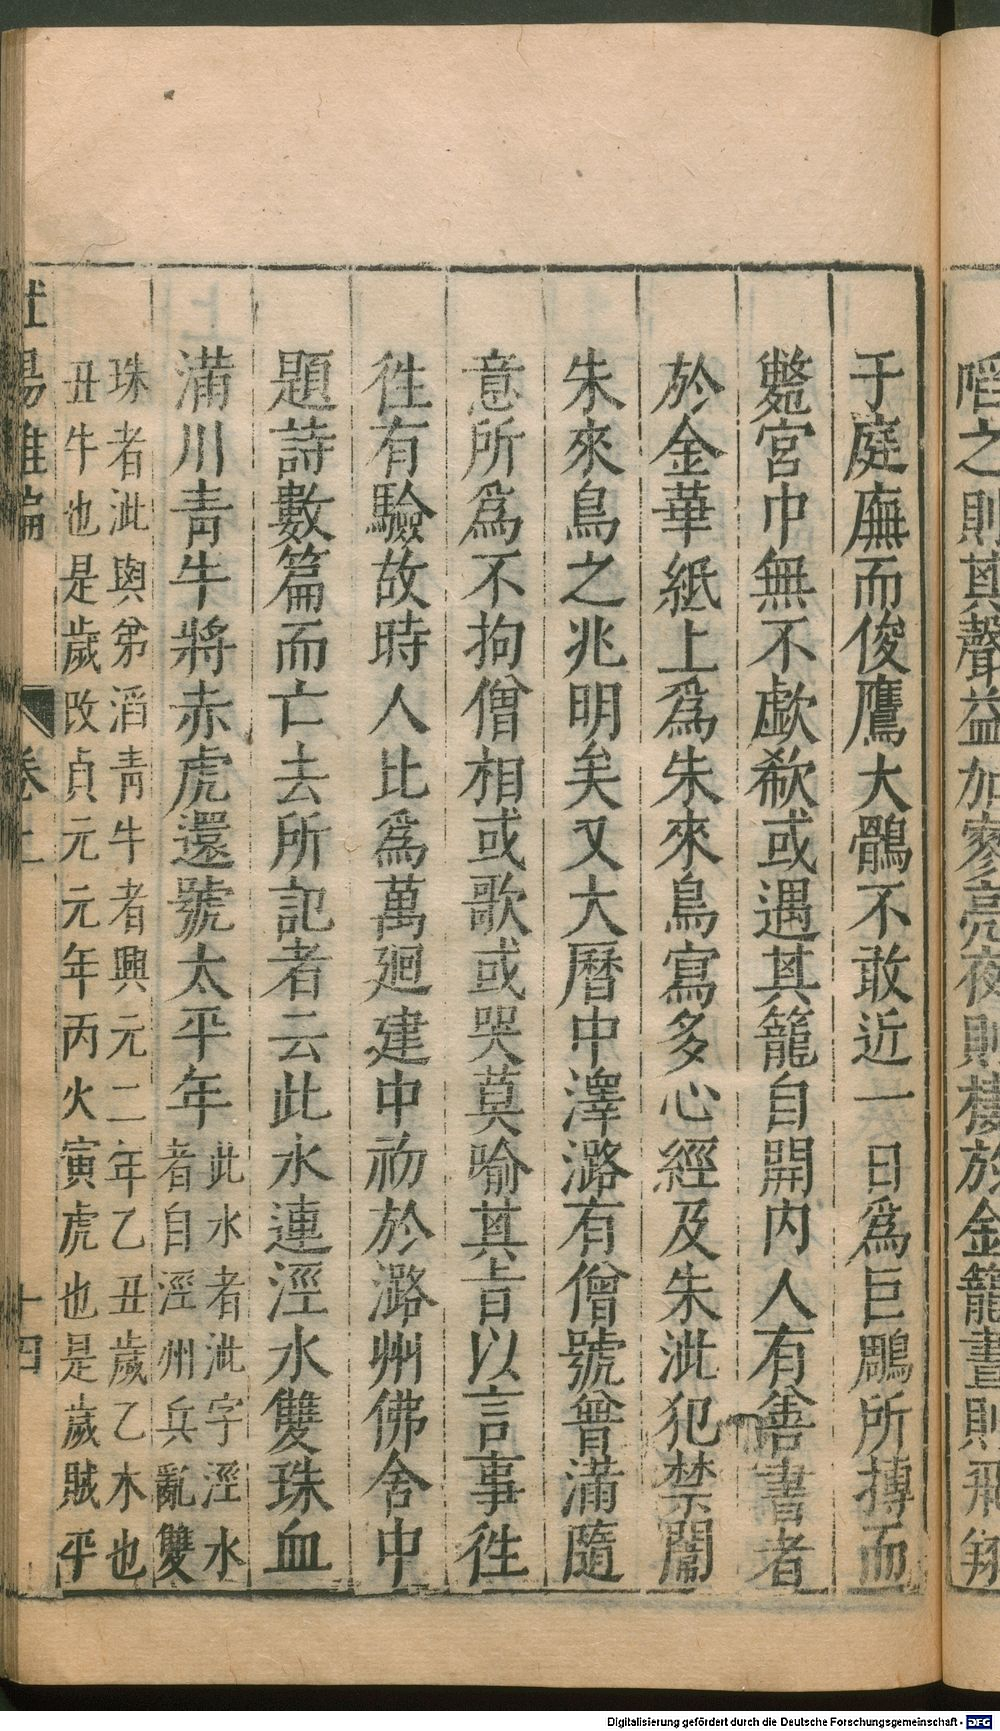 啗之則其聲益加寥亮夜則棲於金籠晝則飛翔
于庭廡而俊鷹大鶻不敢近一日爲巨鵰所搏而
斃宮中無不歔欷或遇其籠自開內人有善書者
於金華紙上爲朱來鳥寫多心經及朱泚犯禁闈
朱來鳥之兆明矣又大曆中澤潞有僧號普滿隨
意所爲不拘僧相或歌或哭莫喻其旨以言事徃
徃有驗故時人比爲萬迴建中初於潞州佛舍中
題詩數篇而亡去所記者云此水連涇水雙珠血
滿川青牛將赤虎還號太平年此水者泚字涇水
者自涇州兵亂雙
珠者泚與弟滔青牛者興元二年乙丑歲乙木也
丑牛也是歲改貞元元年丙火寅虎也是歲賊平
杜陽雜編
卷上
十四
Digitalisierung gefördert durch die Deutsche Forschungsgemeinschaft - DFG